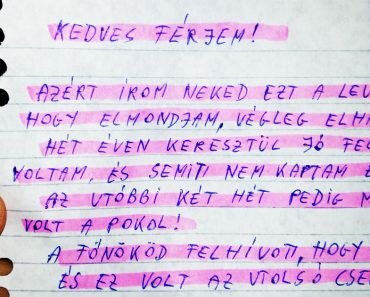 KEDVES FÉRJEM!
AZÉRT ÍROM NEKED EZT A LEV
HOGY ELMONDJAM, VÉGLEG ELH
HÉT ÉVEN KERESZTÜL JÓ FEL
VOLTAM, ÉS SEMITI NEM KAPTAM
AZ UTÓBBI KÉT HÉT PEDIG M
VOLT A POKOL!
A FŐNÖKÖD FELHÍVOTI, HOGY
ÉS EZ VOLT AZ UTOLSÓ CSE